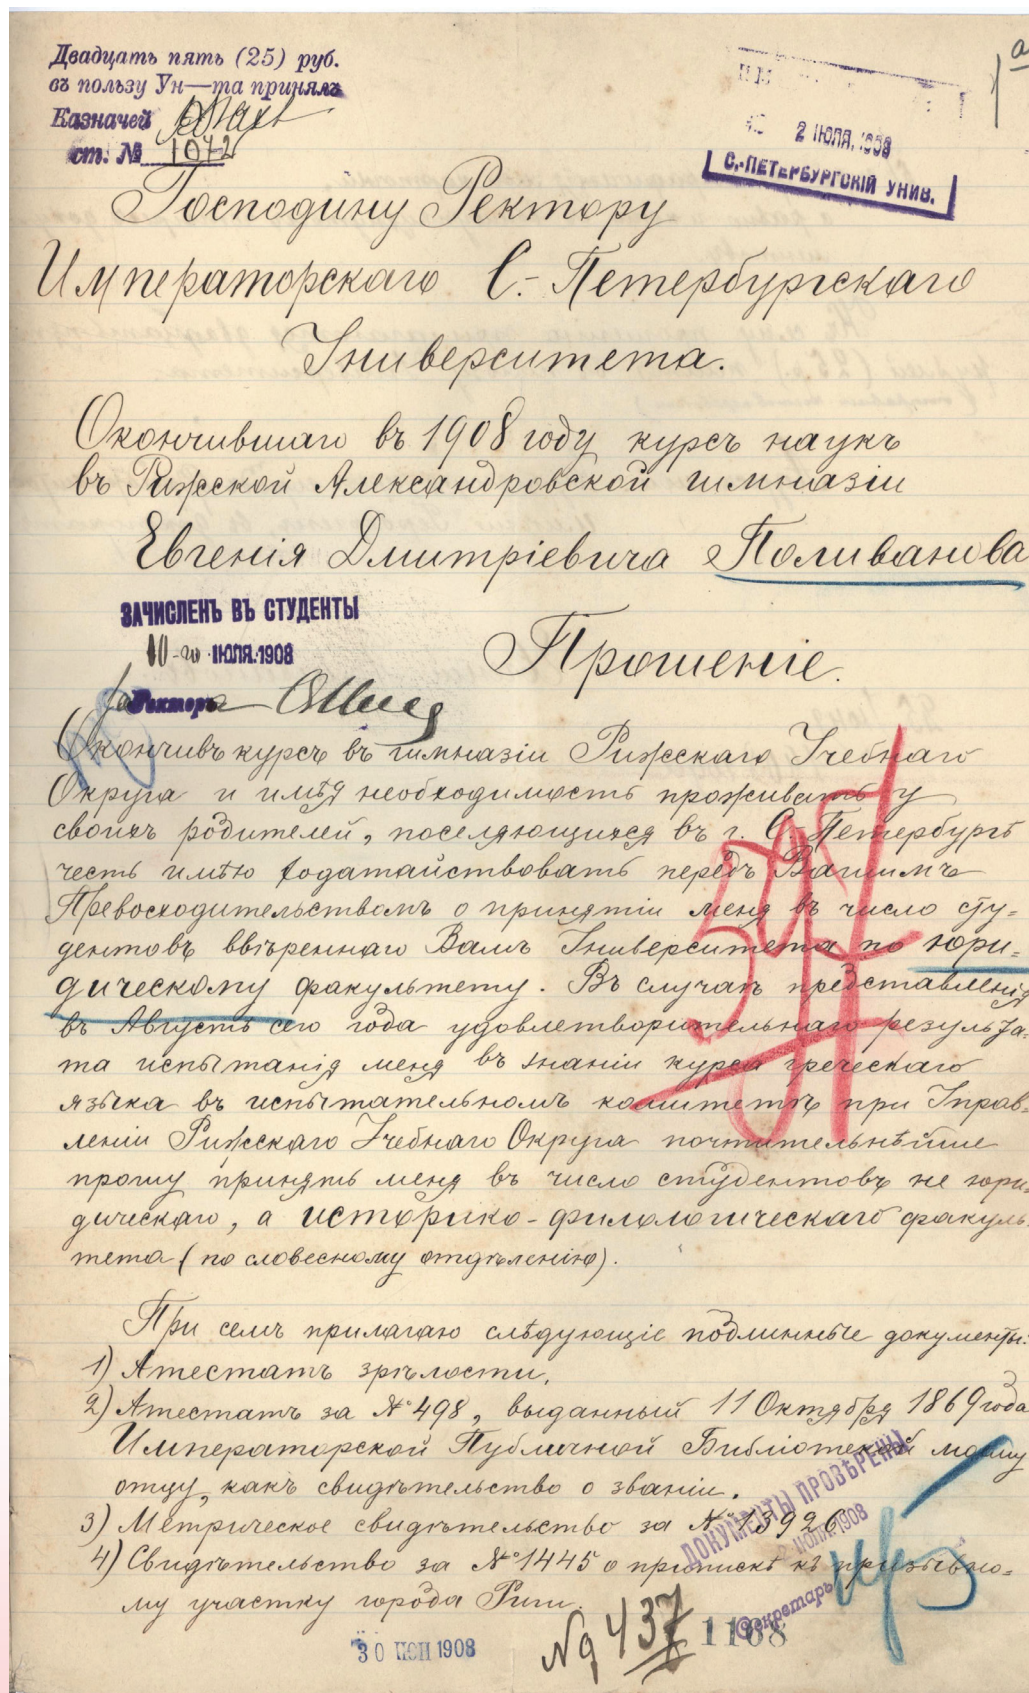 Двадцать пять (25) руб.
въ пользу Ун—та принялъ
Казначей
ст. № 1072
1а
2 ІЮЛЯ.1908
С.-ПЕТЕРБУРГСКІЙ УНИВ.
Господину Ректору
Императорскаго С.-Петербургскаго
Университета.
Окончившаго въ 1908 году курсъ наукъ
въ Рижской Александровской гимназіи
Евгенія Дмитріевича Поливанова
ЗАЧИСЛЕНЪ ВЪ СТУДЕНТЫ
10-го ІЮЛЯ.1908
Прошеніе.
Ректоръ
Окончивъ курсъ въ гимназіи Рижскаго Учебнаго
Округа и имѣя необходимость проживать у
своихъ родителей, поселяющихся въ г. С.-Петербургѣ
честь имѣю ходатайствовать передъ Вашимъ
Превосходительствомъ о принятіи меня въ число сту-
дентовъ ввѣреннаго Вамъ Университета по юри-
дическому факультету. Въ случаѣ представленія
въ Августѣ сего года удовлетворительнаго результа-
та испытанія меня въ знаніи курса греческаго
языка въ испытательномъ комитетѣ при Управ-
леніи Рижскаго Учебнаго Округа почтительнѣйше
прошу принять меня въ число студентовъ не юри
дическаго, а историко-филологическаго факуль-
тета (по словесному отдѣленію).
При семъ прилагаю слѣдующіе подлинные документы:
1) Аттестатъ зрѣлости.
2) Аттестатъ за № 498, выданный 11 Октября 1869 года
Императорской Публичной Библіотекой моему
отцу, какъ свидѣтельство о званіи.
3) Метрическое свидѣтельство за № 13926
4) Свидѣтельство за № 1445 о припискѣ къ призывно-
му участку города Риги.
ДОКУМЕНТЫ ПРОВѢРЕНЫ
1908
Секретарь
30 ІЮН 1908
№ 437
1168